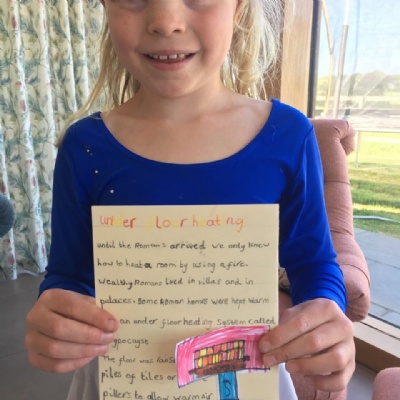 under floor heating
until the Romans arrived we only knew
how to heat a room by using a fire.
wealthy Romans lived in villas and in
palaces. Some Roman homes were kept warm
an under floor heating System called
ypocaust
The floor was
piles of tiles or
pillers to allow warm air